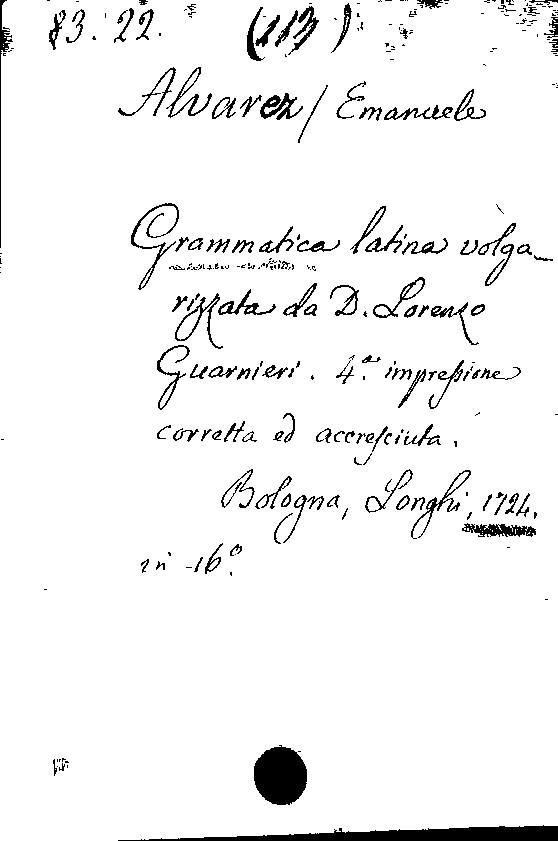 83. 22. (113)
Alvarez / Emanuele
Grammatica latina volga_
rizzata da D. Lorenzo
Guarnieri. 4.ª impreſsione
corretta ed accreſciuta.
Bologna, Longhi, 1724.
in -16.º